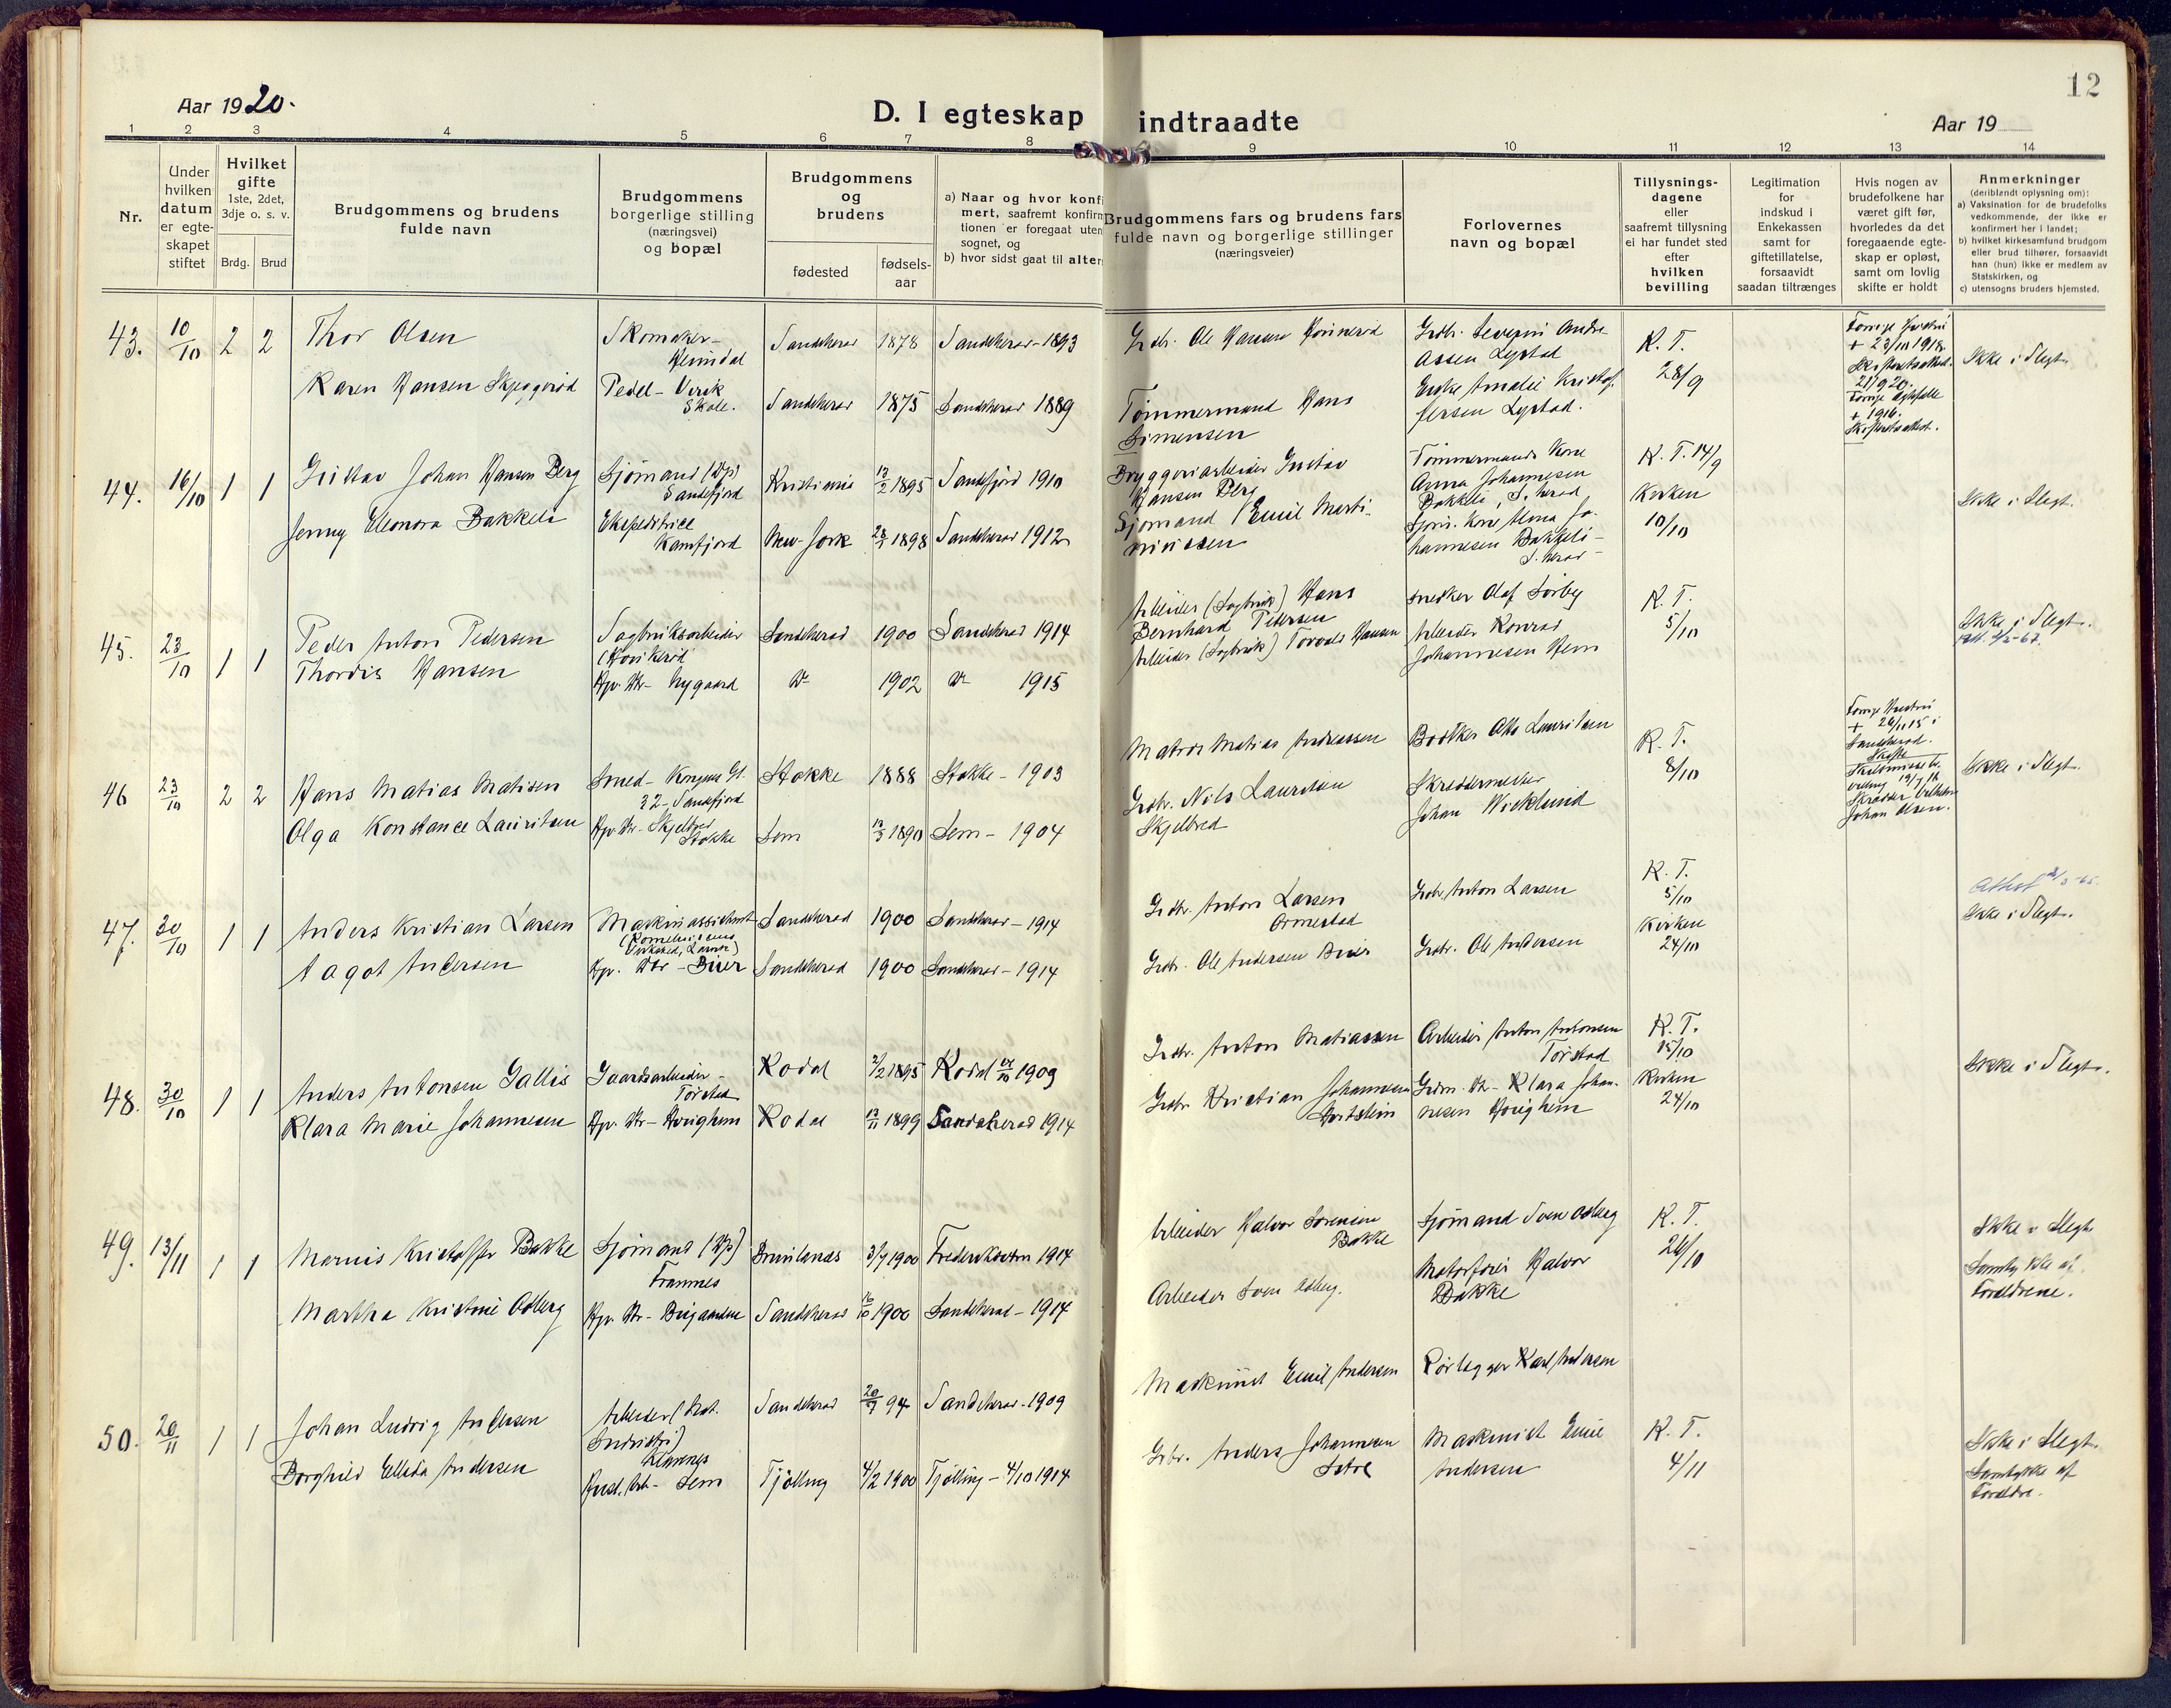 Aar 1920.
D. I egteskap indtraadte
12
Aar 19
1 2 3 4 5 6 7 8 9 10 11 12 13 14
Nr.
Under
hvilken
datum
er egte-
skapet
stiftet
Hvilket
gifte
1ste, 2det,
3dje o. s. v.
Brdg. Brud
Brudgommens og brudens
fulde navn
Brudgommens
borgerlige stilling
(næringsvei)
og bopæl
Brudgommens
og
brudens
fødested
fødsels-
aar
a) Naar og hvor konfi
mert, saafremt konfirm
tionen er foregaat uten
sognet, og
b) hvor sidst gaat til alter
Brudgommens fars og brudens fars
fulde navn og borgerlige stillinger
(næringsveier)
Forlovernes
navn og bopæl
Tillysnings-
dagene
eller
saafremt tillysning
ei har fundet sted
efter
hvilken
bevilling
Legitimation
for
indskud i
Enkekassen
samt for
giftetillatelse,
forsaavidt
saadan tiltrænges
Hvis nogen av
brudefolkene har
været gift før,
hvorledes da det
foregaaende egte-
skap er opløst,
samt om lovlig
skifte er holdt
Anmerkninger
(deriblandt oplysning om):
a) Vaksination for de brudefolks
vedkommende, der ikke er
konfirmert her i landet;
b) hvilket kirkesamfund brudgom
eller brud tilhører, forsaavidt
han (hun) ikke er medlem av
Statskirken, og
c) utensogns bruders hjemsted.
43. 10/10 2 2
Thor Olsen
Skomaker-
Heimdal
Sandeherad 1878 Sandeherad - 1893
Grdbr. Ole Hansen
Grdbr. Severin Andre-
assen Lystad
R. T.
28/9
Forrige Hustru
+ 23/10 1918.
Skifteattest.
21/9 20.
Forrige Egtefælle
+ 1916.
Skifteattest.
Ikke i Slegt.
Karen Hansen Skjeggerød
Pedel - Virik
Skole.
Sandeherad 1875 Sandeherad 1889
Tømmermand Hans
Simensen
Enke Amalie Kristof-
fersen Lystad.
44. 16/10 1 1
Gustav Johan Hansen Berg
Sjømand (Hp)
Sandefjord
Kristiania 12/2 1895 Sandefjord 1910
Bryggeriarbeider Gustav
Hansen Berg
Tømmermands Kone
Anna Johannesen
Bakkeli, S. herad
R. T. 14/9
Kirken
10/10
Ikke i Slegt.
Jenny Eleonora Bakkeli
Ekspeditrice
Kamfjord
New-York 1898 Sandeherad 1912
Sjømand Emil Marti-
niussen
Sjøm. Kone Alma Jo-
hannesen Bakkeli -
S. herad -
45. 23/10 1 1
Peder Anton Pedersen
Sagbruksarbeider
Sandeherad 1900 Sandeherad 1914
Arbeider (Sagbruk) Hans
Bernhard Pedersen
Snedker Olaf Sørby
R. T.
5/10
Ikke i Slegt.
Thordis Hansen
Hp. Dtr - Nygaard
Do 1902 Do 1915
Arbeider (Sagbruk) Torvald Hansen
Arbeider Konrad
Johannesen Hem
46 23/10 2 2
Hans Matias Matisen
Smed - Kongens Gt.
32 - Sandefjord
Stokke 1888 Stokke - 1903
Matros Matias Andreassen
Bødker Otto Lauritsen
R. T.
8/10
Forrige Hustru
+ 26/11 15 i
Sandeherad.
Skifte
Skilsmisse be-
villing 19/7 18
Skrædder Vilhelm
Johan Olsen.
Ikke i Slegt.
Olga Konstance Lauritsen
Hp. Dtr - Skjelbred
Stokke
Sem 12/3 1890 Sem - 1904
Grdbr. Nils Lauritsen
Skjelbred
Skreddermester
Johan Wicklund
47. 30/10 1 1
Anders Kristian Larsen
Maskinassistent
Sandeherad 1900 Sandeherad - 1914
Grdbr. Anton Larsen
Ormestad
Grdbr. Anton Larsen
R. T.
5/10
Kirken
24/10
Ikke i Slegt.
Aagot Andersen
Hp. Dtr - Buer
Sandeherad 1900 Sandeherad - 1914
Grdbr. Ole Andersen Buer
Grdbr. Ole Andersen
48. 30/10 1 1
Anders Antonsen Gallis
Gaardsarbeider -
Tørstad
Kodal 2/2 1895 Kodal 1909
Grdbr. Anton Matiassen
Arbeider Anton Antonsen
Tørstad
R. T.
15/10
Kirken
24/10
Ikke i Slegt.
Klara Marie Johannesen
Hp. Dtr - Haughem
Kodal 12/11 1899 Sandeherad 1914
Grdbr. Kristian Johannesen
Grdm. Dtr - Klara Johan-
nesen Haughem
49. 13/11 1 1
Marius Kristoffer Bakke
Sjømand (Hp)
Framnes
Brunlanes 3/7 1900 Frederiksværn 1914
Arbeider Halvor Sørensen
Bakke
Sjømand Sven Osberg
R. T.
26/10
Ikke i Slegt
Samtykke af
Forældrene.
Martha Kristine Osberg
Hp. Dtr - Bugaarden
Sandeherad 16/10 1900 Sandeherad - 1914
Arbeider Sven Osberg.
Motorfører Halvor
Bakke
50. 20/11 1 1
Johan Ludvig Andersen
Arbeider
Industri)
Sandeherad 94 Sandeherad - 1909
Maskinist Emil Andersen
Rørlegger Karl Andersen
R. T.
4/11
Ikke i Slegt.
Samtykke af
Forældre.
Borghild Ellida Andersen
Sem
Tjølling 4/2 1900 Tjølling - 4/10 1914
Grbr. Anders Johannesen
Maskinist Emil
Andersen